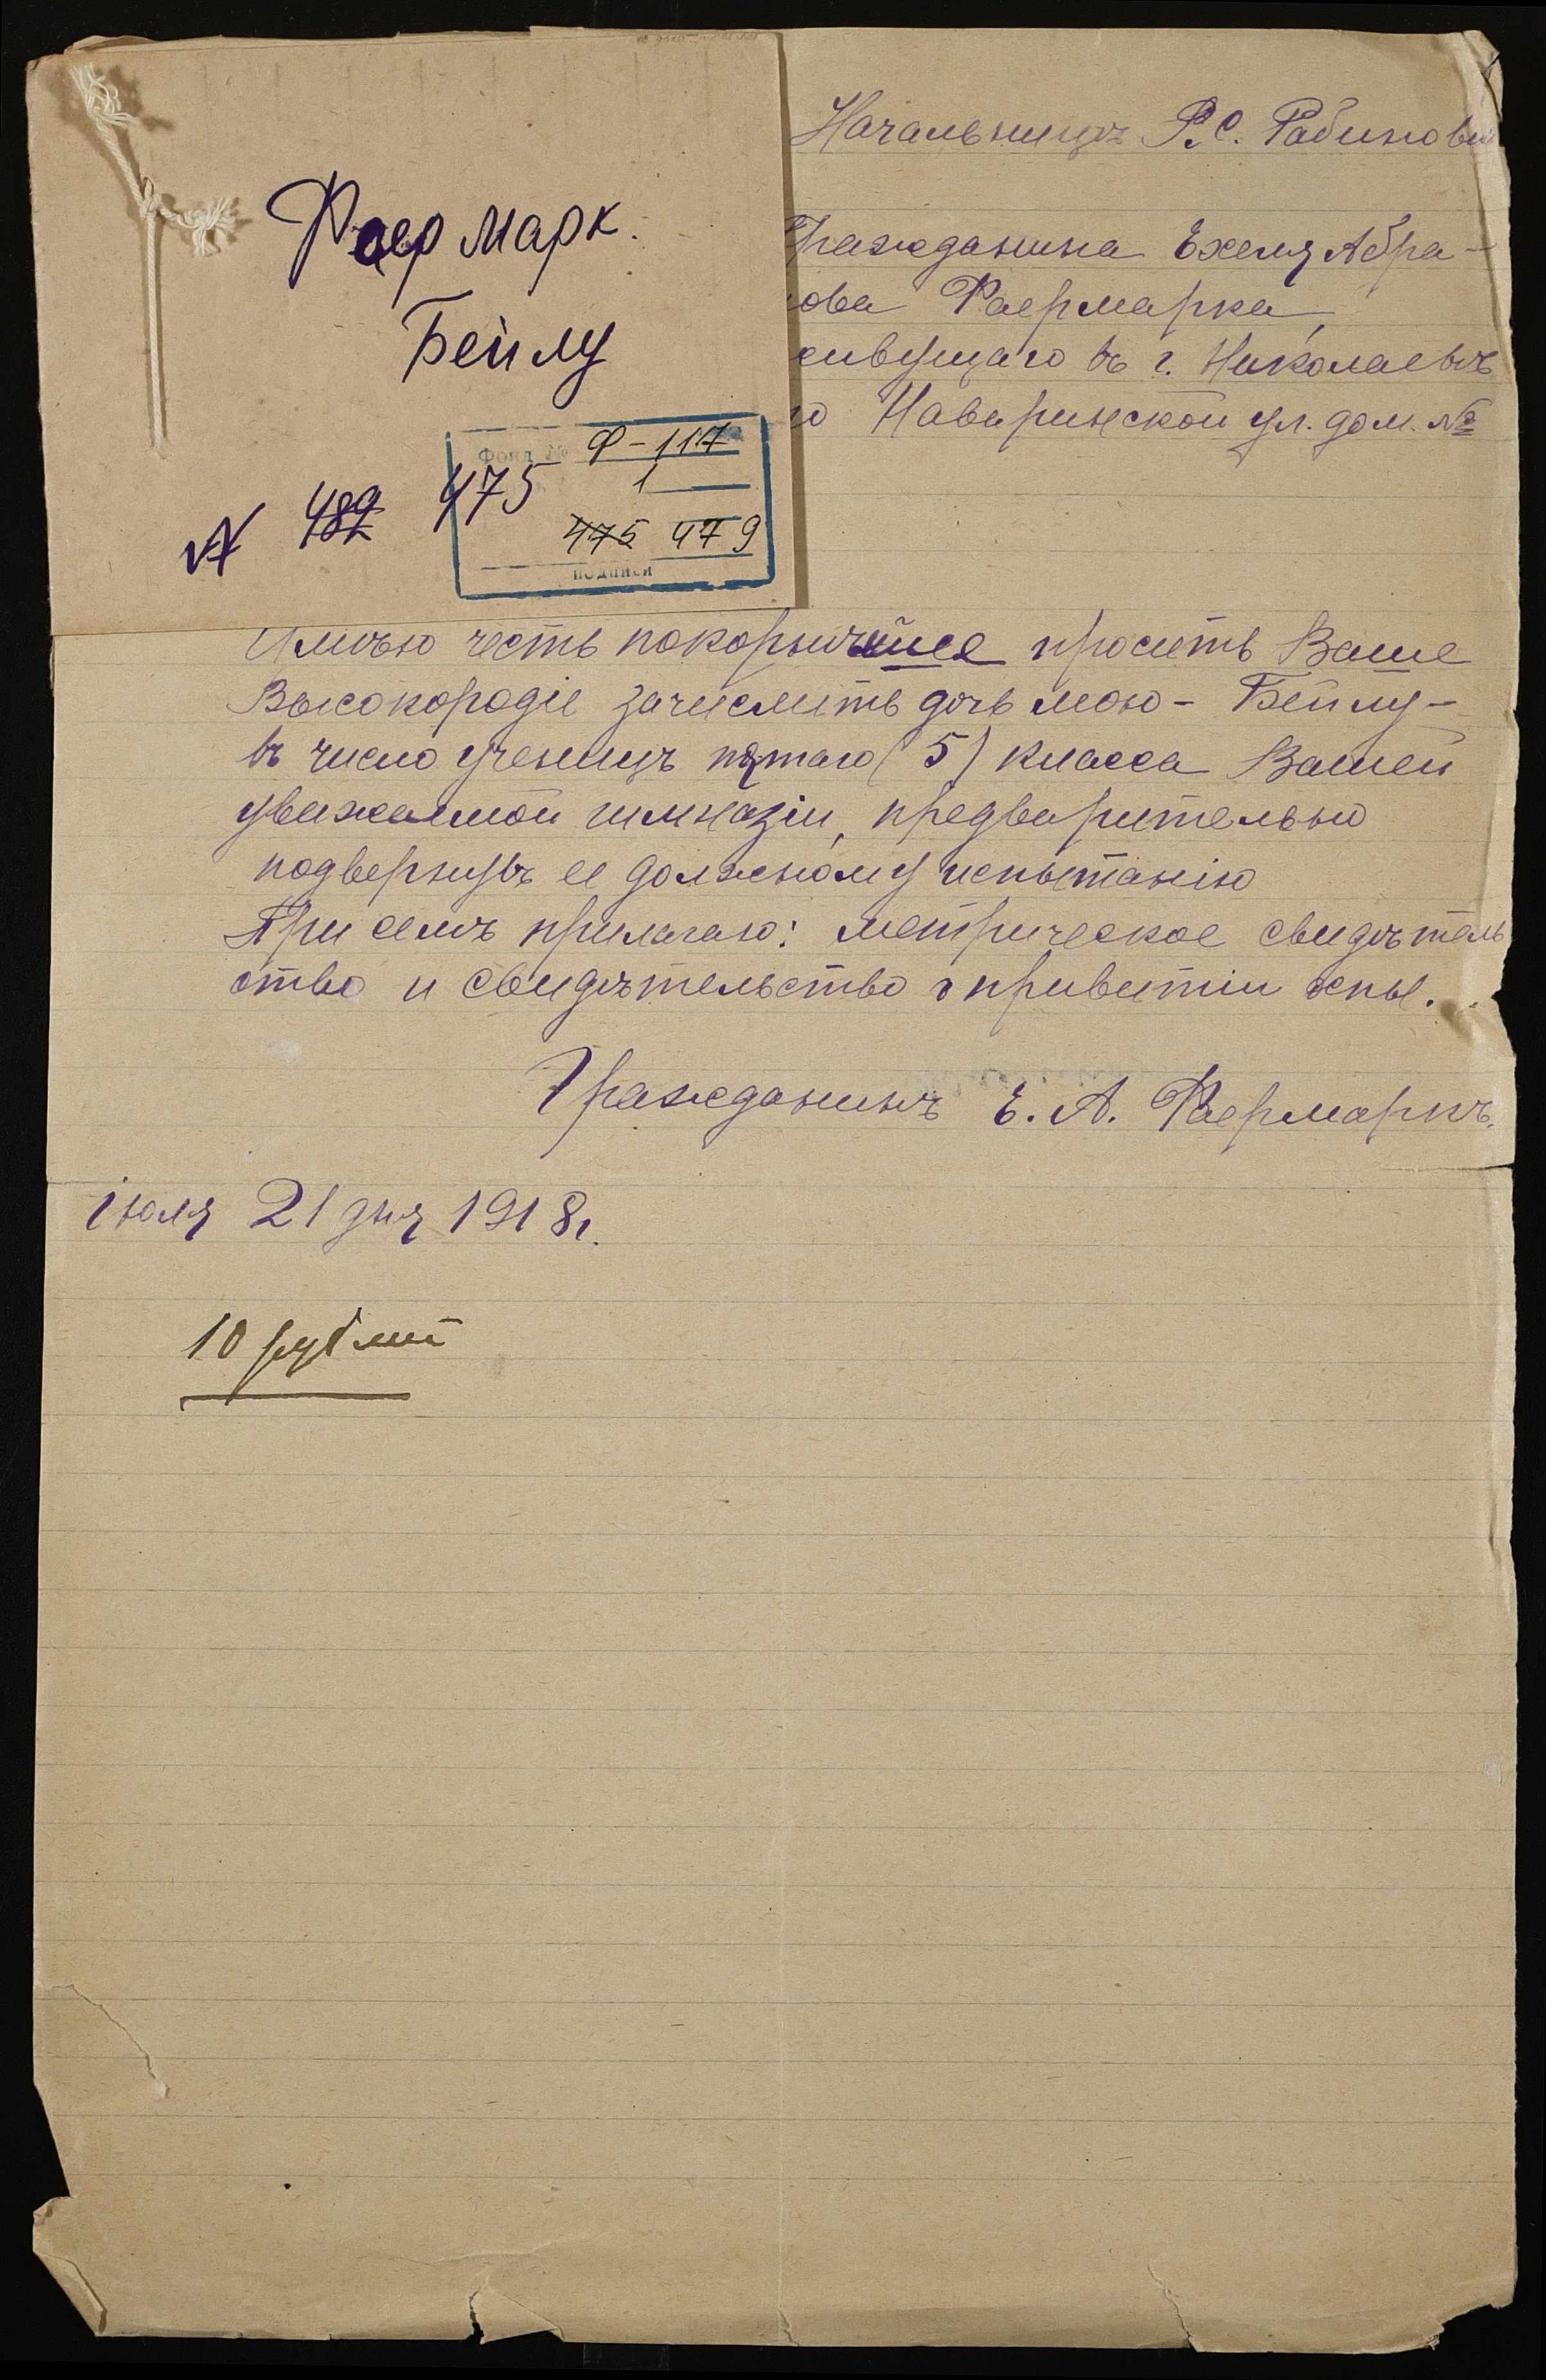 Фаер Марк.
Бейлу
482 475
Фонд № Ф-117
1
475 479
подписи
Начальницѣ Р. С. Рабинови
Гражданина Ехеля Абра-
ова Фаермарка,
живущаго въ г. Николаевѣ
о Наваринской ул. дом. №
Имѣю честь покорнѣйше просить Ваше
Высокородіе зачислить дочь мою - Бейлу -
въ число ученицъ пятаго (5) класса Вашей
уважаемой гимназіи, предварительно
подвергнувъ ее должному испытанію
При семъ прилагаю: метрическое свидѣтель
ство и свидѣтельство о привитіи оспы.
Гражданинъ Е. А. Фаермаркъ.
іюля 21 дня 1918 г.
10 рублей